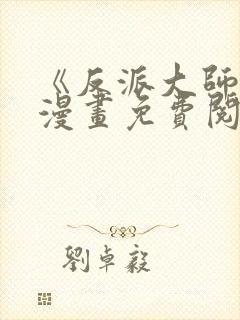 《反派大師
漫畫免費閱
劉卓毅